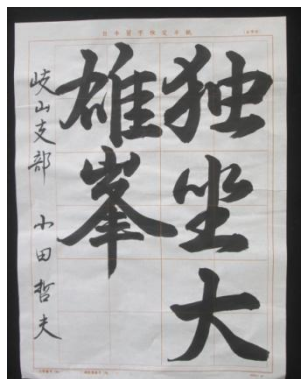 独坐大
雄峯
岐山支部 小田哲夫